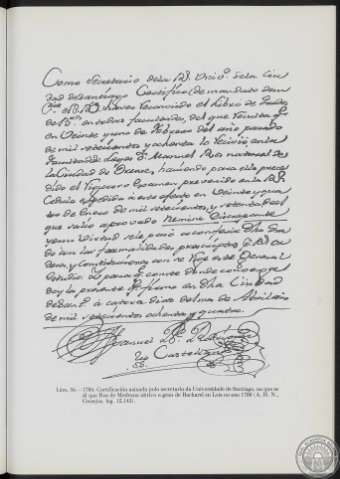 Como Secretario dela Rl. Univd. dela Ciu
dad de Santiago Certifico, de mandato de su
Rr. haver reconocido el Libro de Grados
de Brs. en todas facultades, del que resulta qe.
en Veinte y uno de Febrero del año pasado
de mil setecientos y ochenta lo recivió en la
facultad de Leyes Dn. Manuel Ros natural de
la Ciudad de Orense, haviendo para ello prece
dido el riguroso Examen prevenido en la Rl.
Cedula expedida a este efecto en Veinte y qua
tro de Enero de mil setecientos, y setenta, del
que salio aprovado Nemine Discrepante
y en su Virtud se le pasó a conferir dho Gra
do con las formalidades prescriptas
y Constituciones con se rije este General
Estudio y para qe. conste donde conbenga
doy la presente qe. firmo en dha Ciudad
de Sant.º a catorce dias del mes de Abril año
de mil setecientos ochenta y quatro.
Manuel
Castel
SS.
Lám. 36.—1784. Certificación asinada polo secretario da Universidade de Santiago, na que se
di que Ros de Medrano obtivo o grau de Bacharel en Leis no ano 1780 (A. H. N.,
Consejos, leg. 12.143).